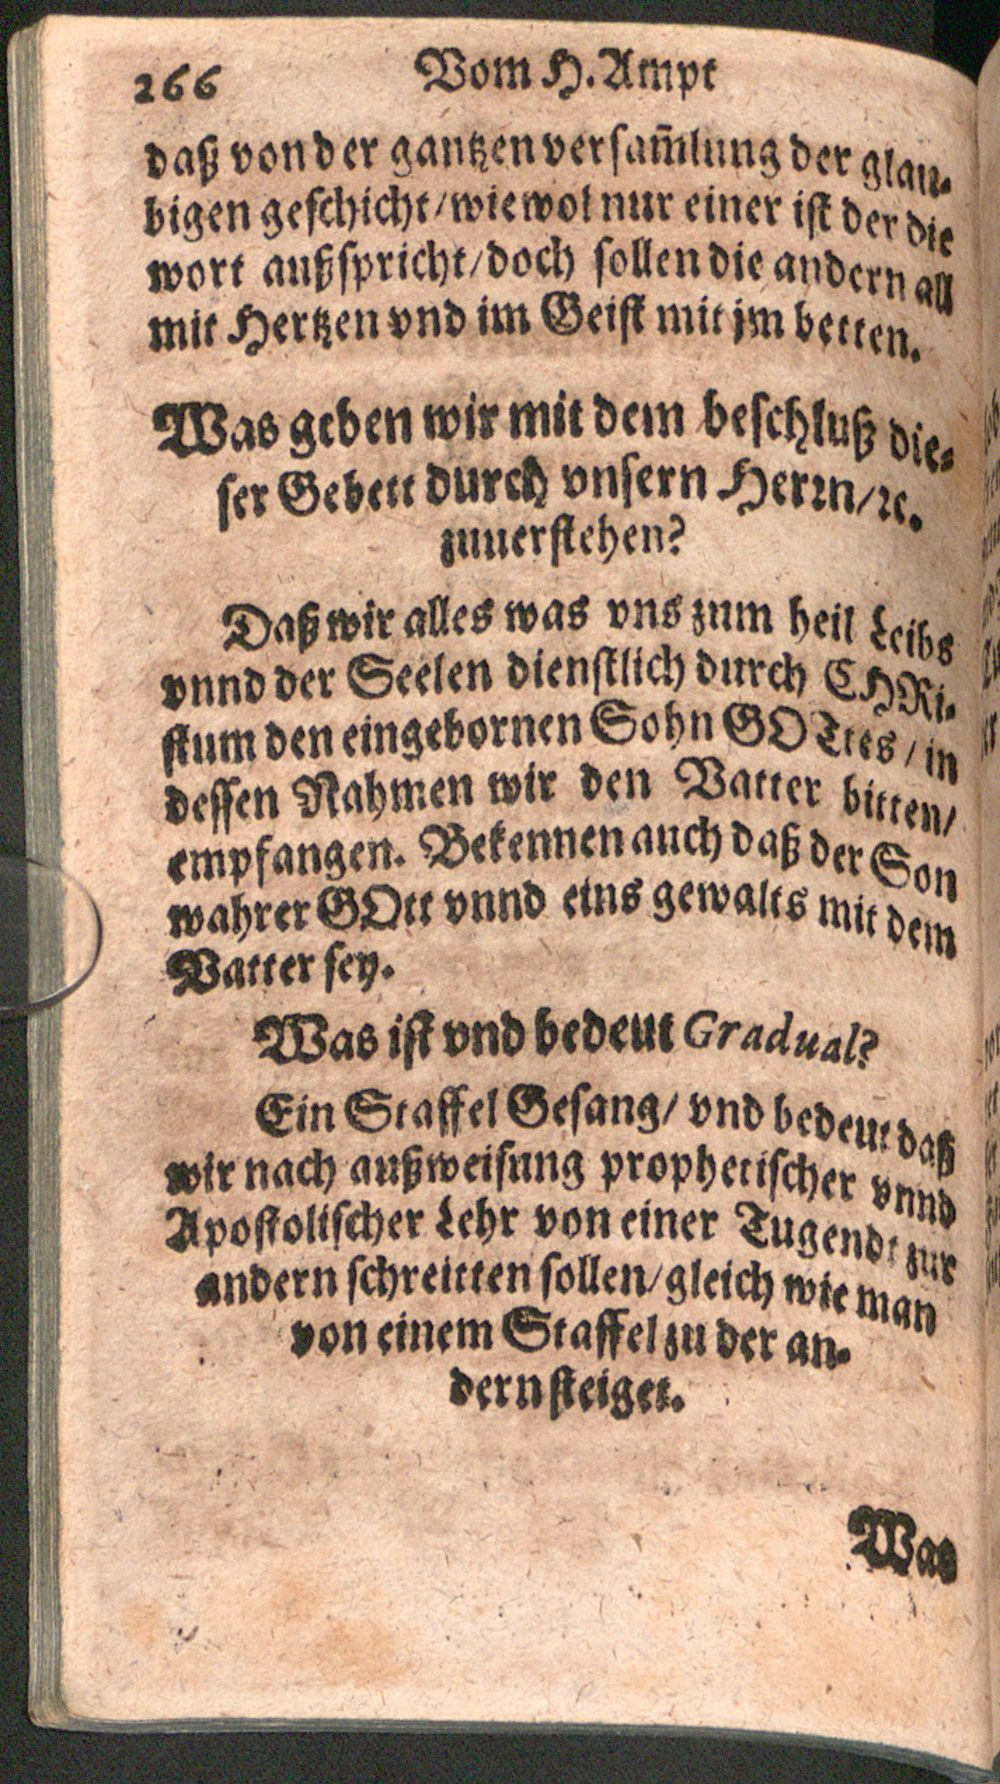 266 Vom H. Ampt
daß von der gantzen versam̃lung der glau-
bigen geschicht/wiewol nur einer ist der die
wort außspricht/doch sollen die andern all
mit Hertzen vnd im Geist mit jm betten.
Was geben wir mit dem beschluß die-
ser Gebett durch vnsern Herrn/ꝛc.
zuuerstehen?
Daß wir alles was vns zum heil Leibs
vnnd der Seelen dienstlich durch CHRi-
stum den eingebornen Sohn GOTtes/in
dessen Nahmen wir den Vatter bitten/
empfangen. Bekennen auch daß der Son
wahrer GOtt vnnd eins gewalts mit dem
Vatter sey.
Was ist vnd bedeut Gradual?
Ein Staffel Gesang/ vnd bedeut daß
wir nach außweisung prophetischer vnnd
Apostolischer Lehr von einer Tugendt zur
andern schreitten sollen/gleich wie man
von einem Staffel zu der an-
dern steiget.
Was